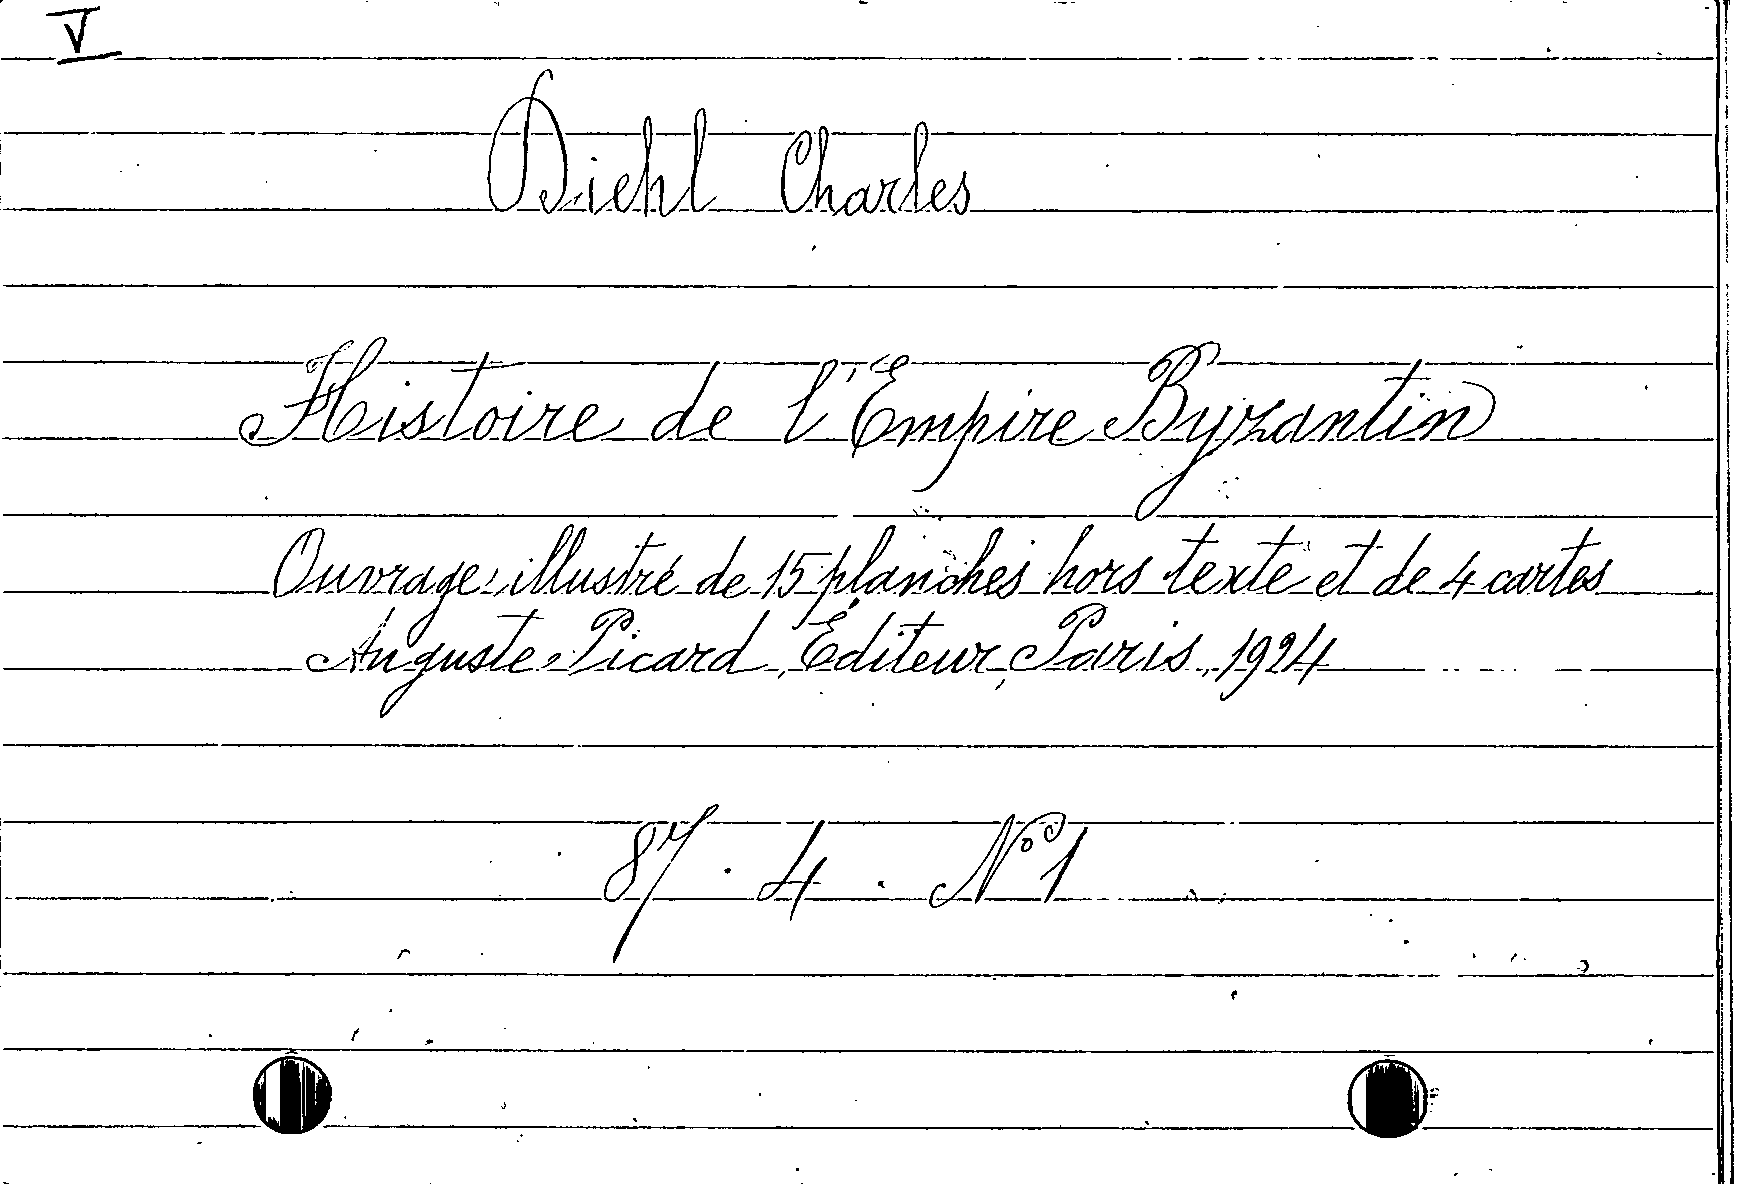 V
Diehl Charles
Histoire de l'Empire Byzantin
Ouvrage illustré de 15 planches hors texte et de 4 cartes
Auguste Picard, Éditeur, Paris, 1924
87 . 4 . N° 1